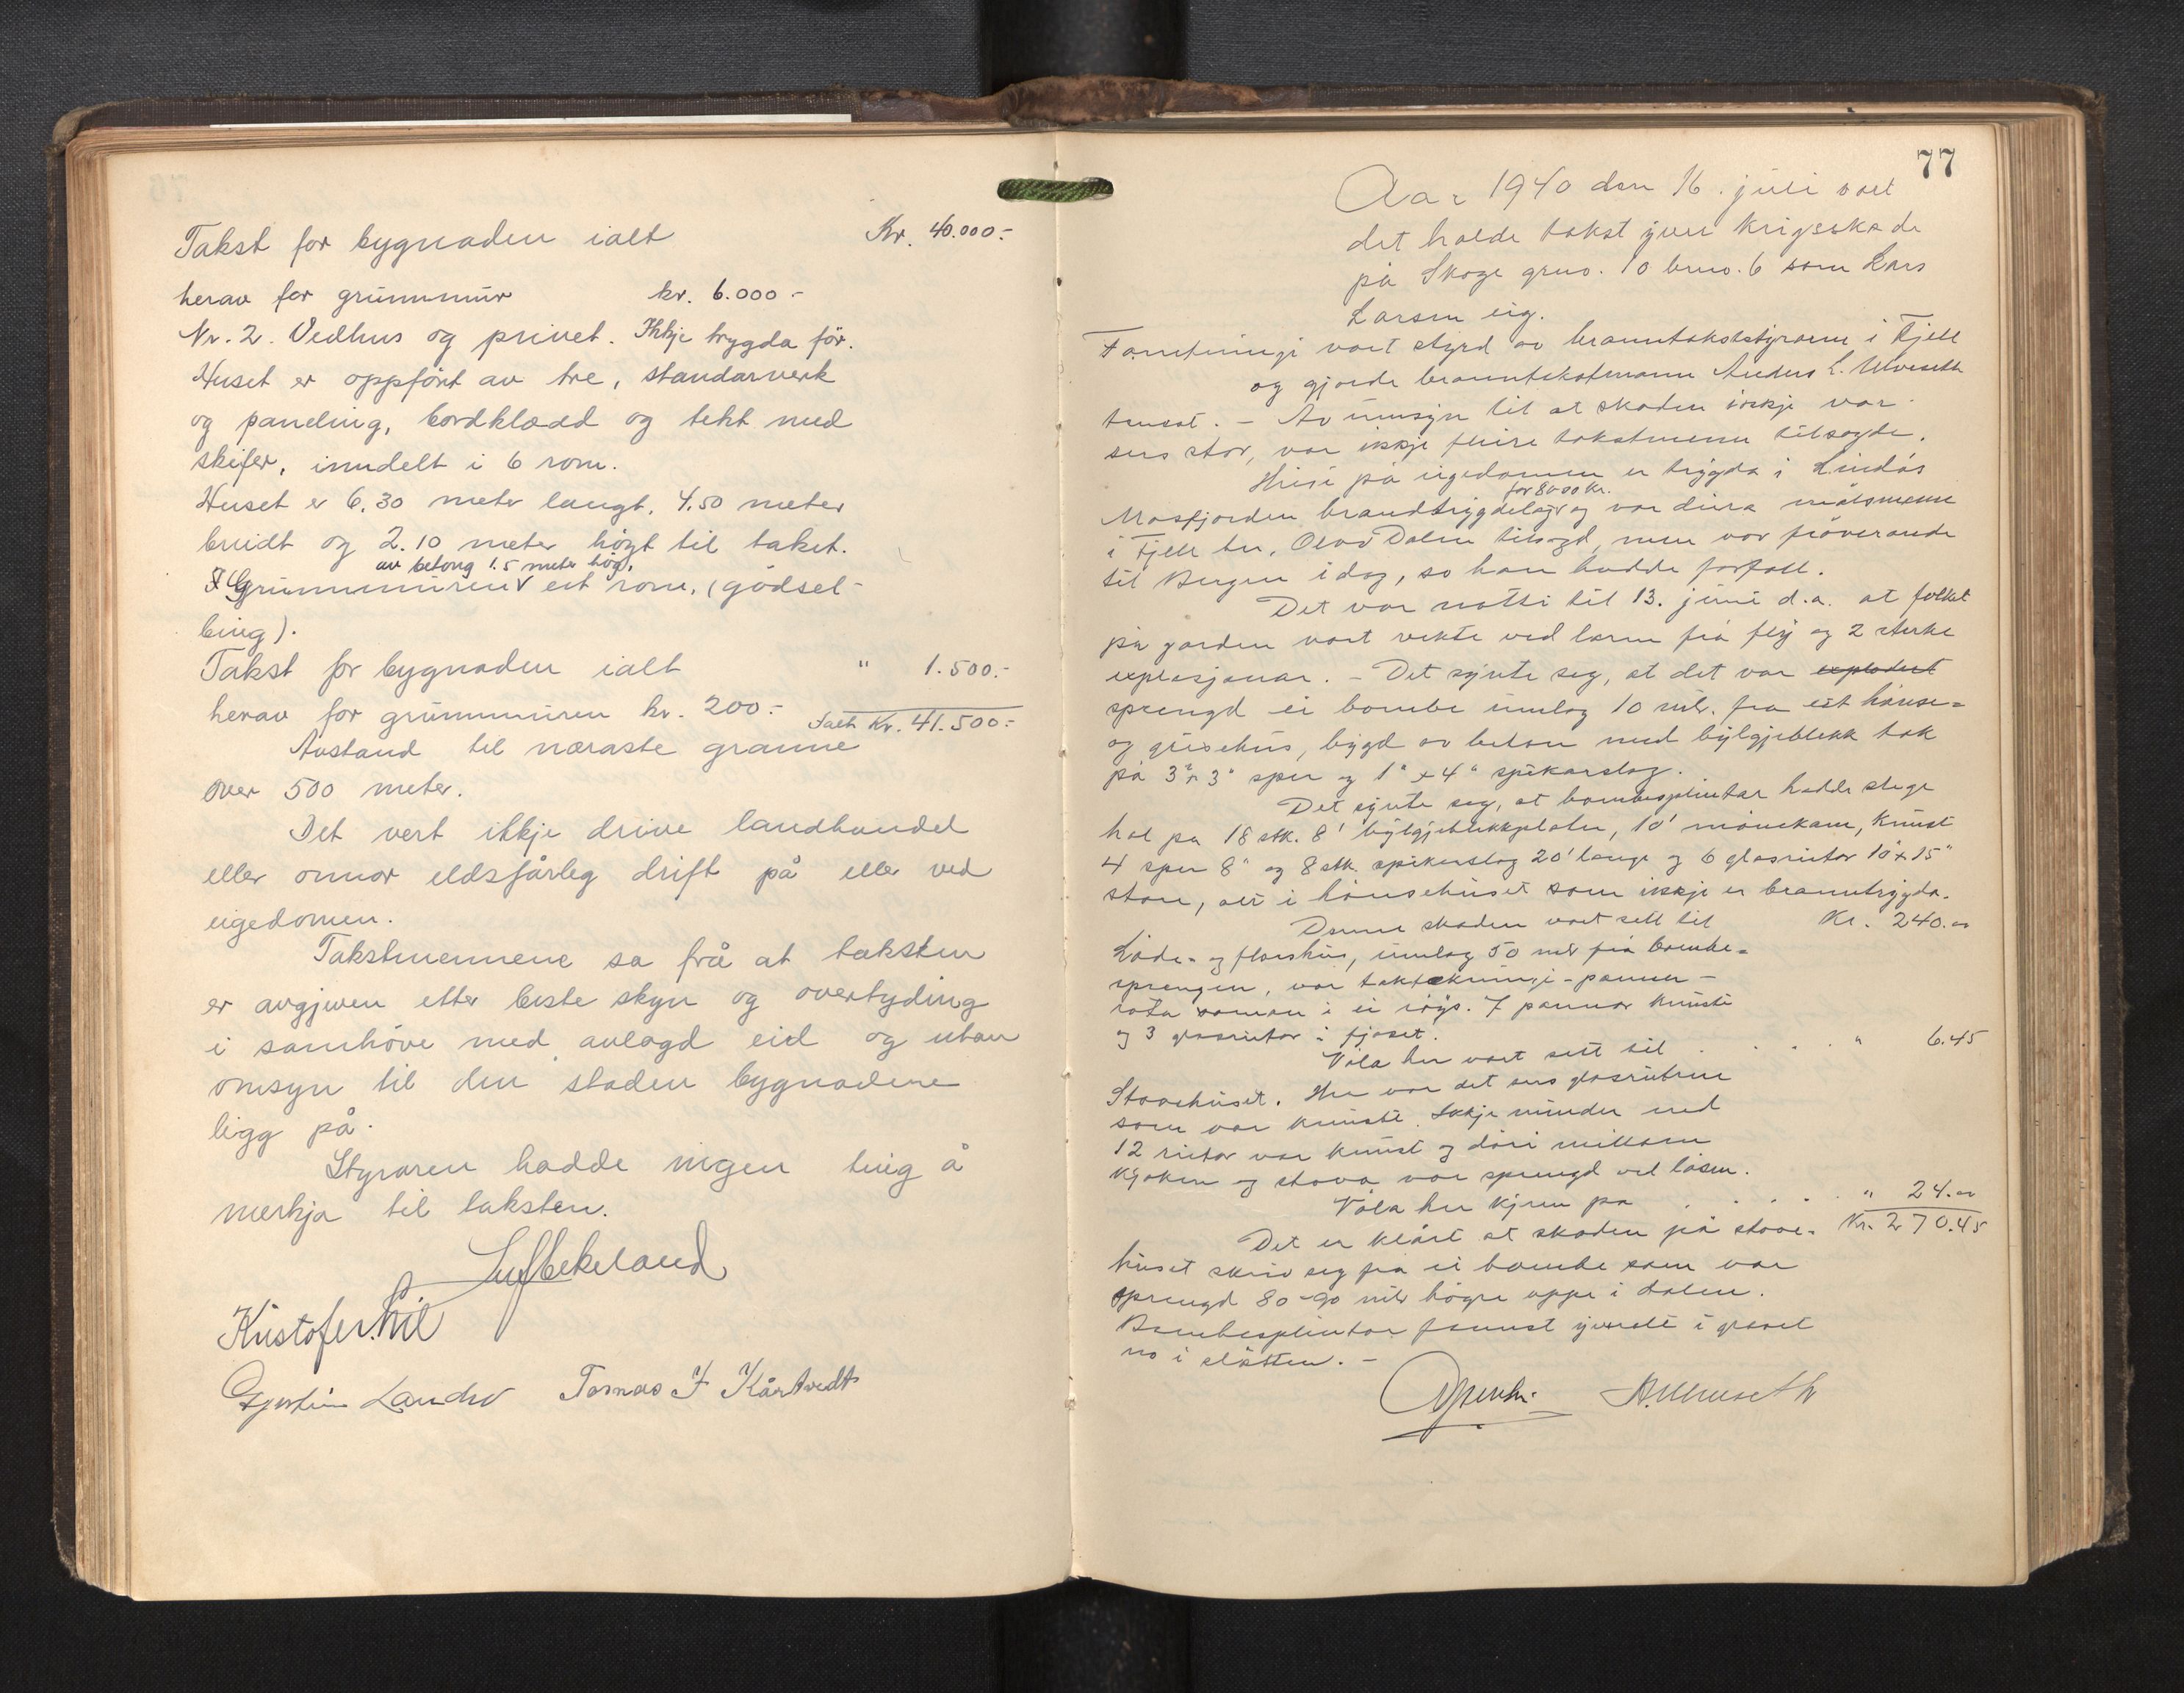 Takst for bygnaden ialt Kr. 40.000.-
herav for grunnmur kr. 6.000 -
Nr. 2. Vedhus og privet. Ikkje trygda för.
Huset er oppfört av tre, standarverk
og paneling, bordklædd og tekt med
skifer, inndelt i 6 rom.
Huset er 6.30 meter langt, 4.50 meter
breidt og 2.10 meter högt til taket.
av betong 1.5 meter hög,
I Grunnmuren eit rom, (gödsel-
bing).
Takst for bygnaden ialt " 1.500.-
herav for grunnmuren kr. 200.- Ialt Kr. 41.500.-
Avstand til næraste granne
over 500 meter.
Det vert ikkje drive landhandel
eller onnor eldsfårleg drift på eller ved
eigedomen.
Takstmennene sa frå at taksten
er avgjeven etter beste skyn og overtyding
i samhöve med avlagd eid og utan
omsyn til den staden bygnadene
ligg på.
Styraren hadde ingen ting å
merkja til taksten.
Kristofer
Landro Tomas I Kårtvedt
77
Aar 1940 den 16. juli vart
det halde takst yver krigsskade
på Skoge grno. 10 brno. 6 som Lars
Larsen eig.
Forretningi vart styrd av branntakststyraren i Fjell
og gjorde branntakstmann Anders L. Ulveseth
tenest. - Av umsyn til at skaden ikkje var
sers stor, var ikkje fleire takstmenn tilsagde.
Husi på eigedomen er trygda i Lindås
for 8000 kr.
Masfjorden brandtrygdelag og var deira målsmenn
i Fjell hr. Olav Dalen tilsagd, men var fråverande
til Bergen idag, so han hadde forfall.
Det var natti til 13. juni d.a. at folket
på garden vart vekte ved larm frå fly og 2 sterke
explosjonar. - Det synte seg, at det var explodert
sprengd ei bombe umlag 10 mtr. fra eit hönse-
og grisehus, bygd av beton med bylgjeblekk tak
på 3" x 3" sper og 1" x 4" spikarslag.
Det synte seg, at bombesplintar hadde slege
hol på 18 stk. 8' bylgjeblekkplater, 10' mönekam, knust
4 sper 8" og 8 stk. spikerslag 20' lange og 6 glasrutor 10" x 15"
store, alt i hönsehuset som ikkje er branntrygda.
Denne skaden vart sett til Kr. 240.00
Löde- og florshus, umlag 50 mtr frå bombe-
sprengen, var taktekkingi - pannen -
rota saman i ei röys. 7 pannor knuste
og 3 glasrutor i fjoset.
Völa her vart sett til . . . . " 6.45
Stovehuset. Her var det sers glasrutene
som var knuste. Ikkje mindre end
12 rutor var knust og döri millom
kjöken og stova var sprengd ved låsen.
Völa her kjem på . . . . . " 24.00
Kr. 270.45
Det er klårt at skaden på stove-
huset skriv seg frå ei bombe som var
sprengd 80-90 mtr högre oppe i dalen.
Bombesplintar fannst yveralt i graset
no i slåtten. -
A. Ulveseth